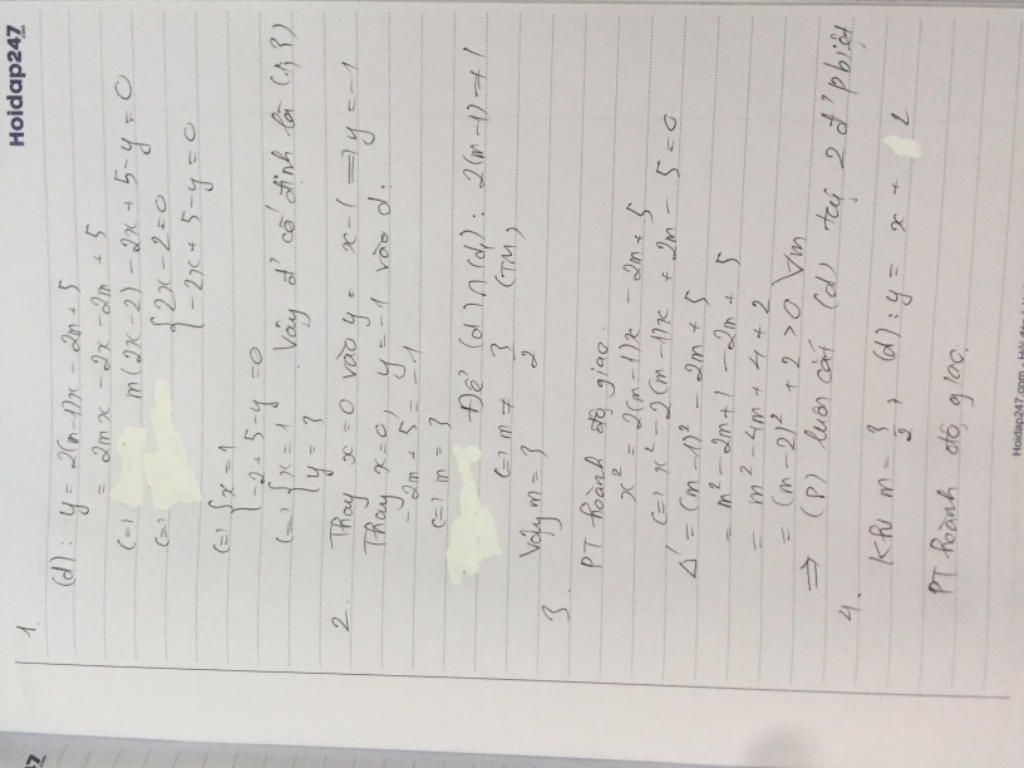 Hoidap247
1.
(d): y = 2(m-1)x - 2m + 5
= 2mx - 2x - 2m + 5
(=) m(2x-2) - 2x + 5 - y = 0
(=) { 2x - 2 = 0
{ -2x + 5 - y = 0
(=) { x = 1
{ -2 + 5 - y = 0
(=) { x = 1 Vậy đ' cố định là (1,3)
{ y = 3
2. Thay x = 0 vào y = x - 1 => y = -1
Thay x = 0, y = -1 vào d:
-2m + 5 = -1
(=) m = 3
Để (d) ∩ (d₁): 2(m-1) ≠ 1
(=) m ≠ 3/2 (TM)
Vậy m = 3
3. PT hoành độ giao
x² = 2(m-1)x - 2m + 5
(=) x² - 2(m-1)x + 2m - 5 = 0
Δ' = (m-1)² - 2m + 5
= m² - 2m + 1 - 2m + 5
= m² - 4m + 4 + 2
= (m-2)² + 2 > 0 ∀m
=> (P) luôn cắt (d) tại 2 đ' pbiệt
4.
Khi m = 3/2, (d): y = x + 2
PT hoành độ giao